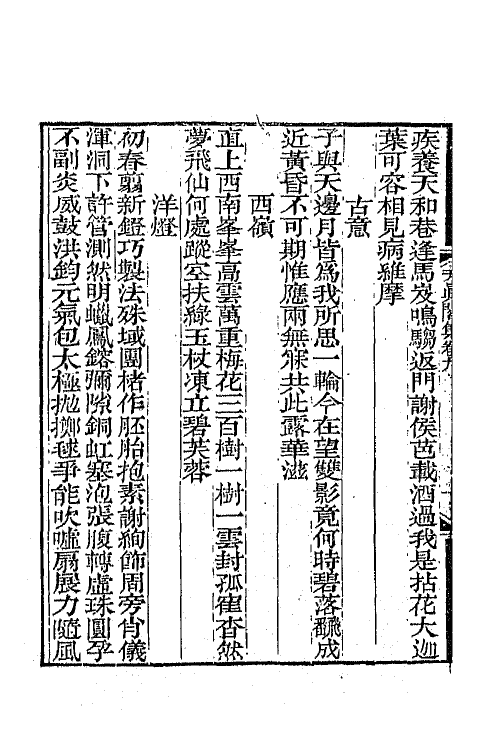 疾養天和巷逢馬岌鳴騶返門謝侯芭載酒過我是拈花大迦
葉可容相見病維摩
古意
子與天邊月皆爲我所思一輪今在望雙影竟何時碧落翻成
近黃昏不可期惟應兩無寐共此露華滋
西嶺
直上西南峯峯高雲萬重梅花三百樹一樹一雲封孤崔杳然
夢飛仙何處蹤空扶綠玉杖凍立碧芙蓉
洋燈
初春翦新鐙巧製法殊域團楮作胚胎抱素謝絢飾周旁肖儀
渾洞下許管測然明蠟鳳鎔彌隙銅虹塞泡張腹轉虛珠圓孕
不副炎威鼓洪鈞元氣包太極拋擲毬爭能吹噓扇展力隨風